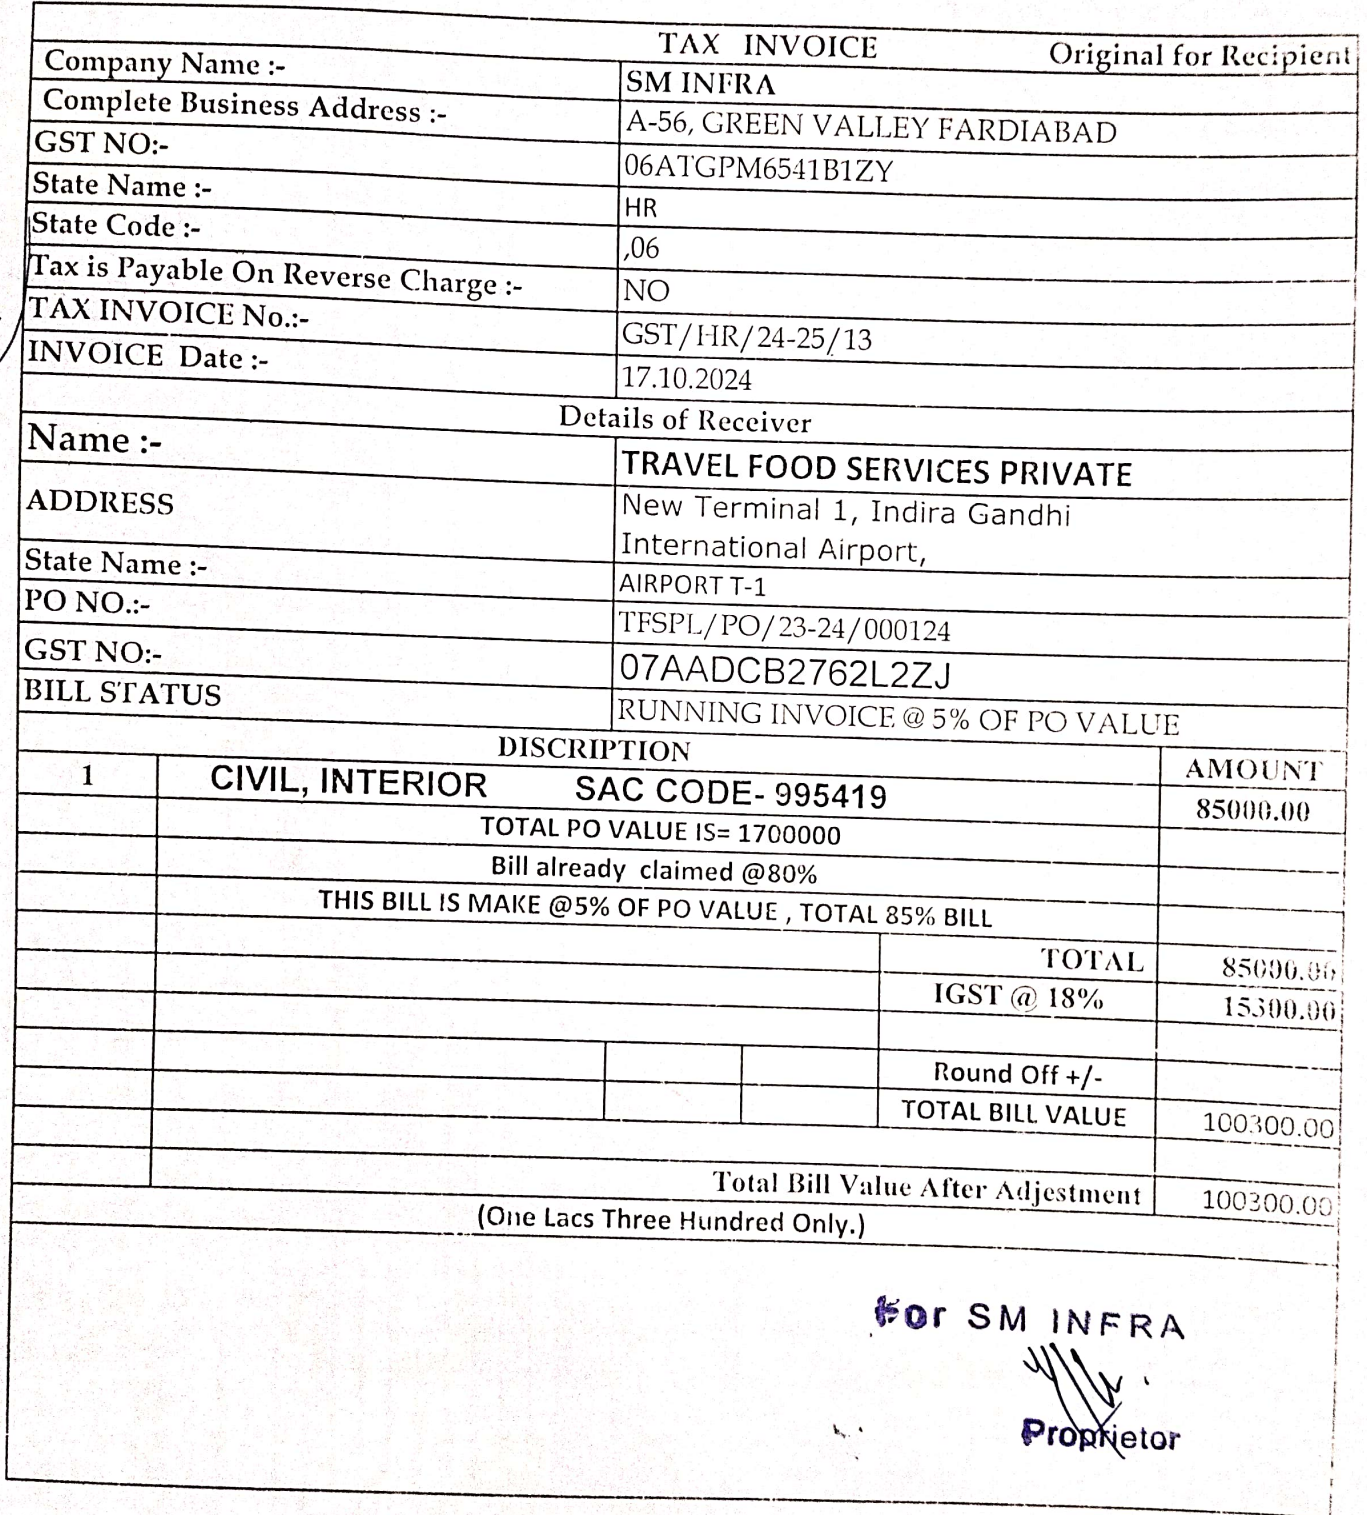 TAX INVOICE Original for Recipient
Company Name :- SM INFRA
Complete Business Address :- A-56, GREEN VALLEY FARDIABAD
GST NO:- 06ATGPM6541B1ZY
State Name :- HR
State Code :- ,06
Tax is Payable On Reverse Charge :- NO
TAX INVOICE No.:- GST/HR/24-25/13
INVOICE Date :- 17.10.2024
Details of Receiver
Name :- TRAVEL FOOD SERVICES PRIVATE
ADDRESS New Terminal 1, Indira Gandhi
International Airport,
State Name :- AIRPORT T-1
PO NO.:- TFSPL/PO/23-24/000124
GST NO:- 07AADCB2762L2ZJ
BILL STATUS RUNNING INVOICE @ 5% OF PO VALUE
DISCRIPTION AMOUNT
1 CIVIL, INTERIOR SAC CODE- 995419 85000.00
TOTAL PO VALUE IS= 1700000
Bill already claimed @80%
THIS BILL IS MAKE @5% OF PO VALUE , TOTAL 85% BILL
TOTAL 85000.00
IGST @ 18% 15300.00
Round Off +/-
TOTAL BILL VALUE 100300.00
Total Bill Value After Adjestment 100300.00
(One Lacs Three Hundred Only.)
For SM INFRA
Proprietor